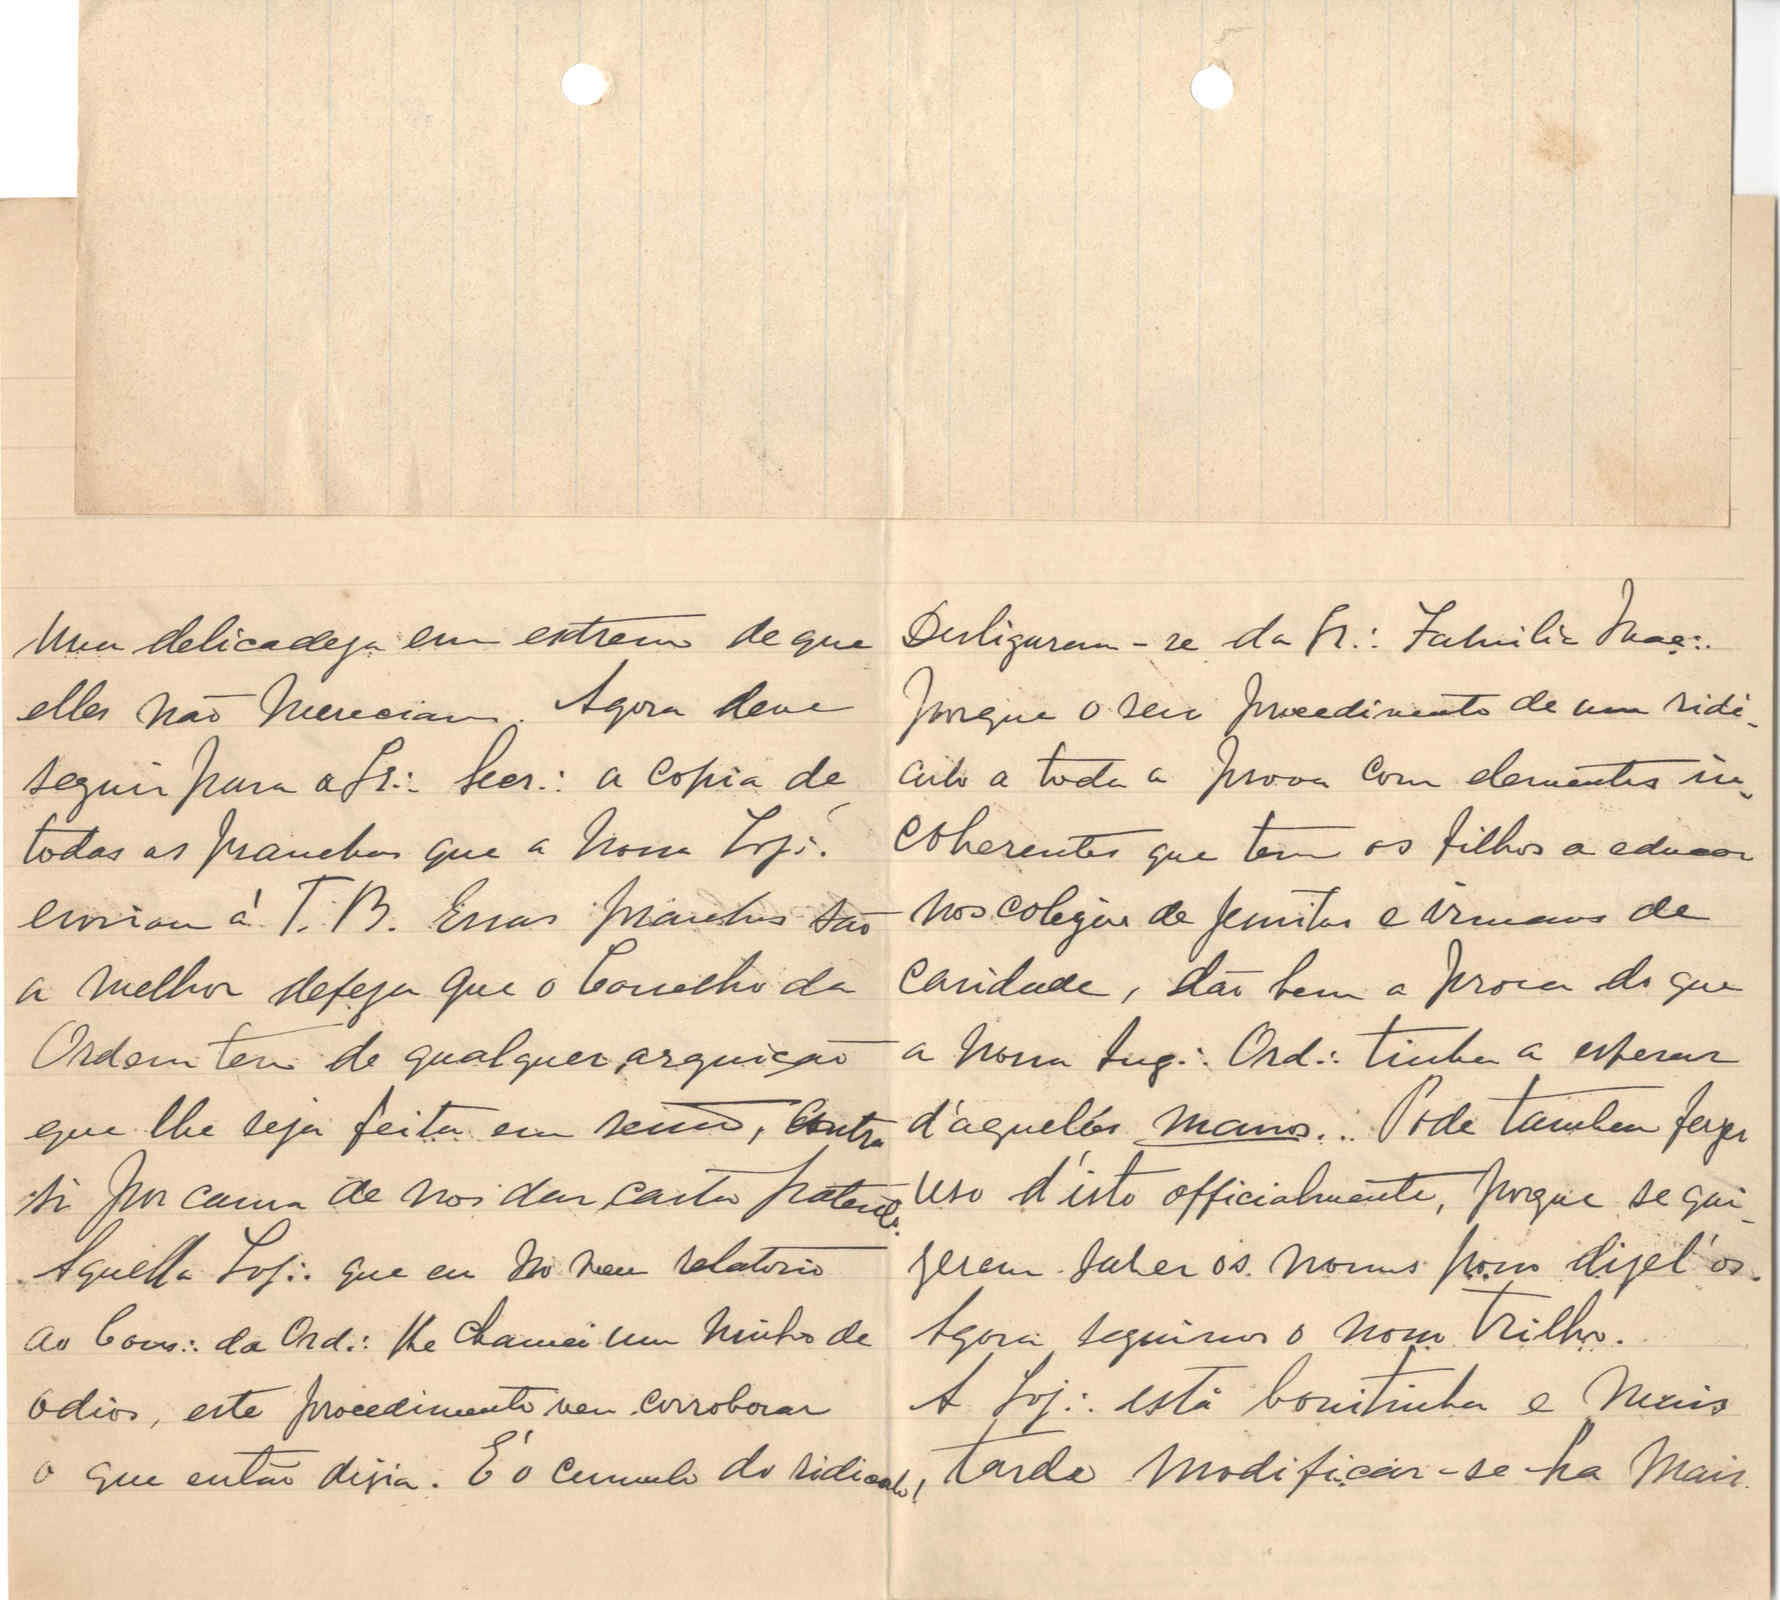 uma delicadeza em extremo de que
elles não mereciam. Agora deve
seguir para a Gr∴ Secr∴ a copia de
todas as pranchas que a nossa Loj∴
enviou á T. B. Essas pranchas são
a melhor defeza que o Conselho da
Ordem tem de qualquer arguição
que lhe seja feita em sessão, contra
si por causa de nos dar carta patente.
Aquella Loj∴ que eu no meu relatorio
ao Cons∴ da Ord∴ lhe chamei um ninho de
odios, este procedimento veu corroborar
o que então dizia. É o cumulo do ridiculo!
Desligaram-se da Gr∴ Familia Maç∴
porque o seu procedimento de um ridi-
culo a toda a prova com elementos in-
coherentes que tem os filhos a educar
nos colegios de jesuitas e irmans de
caridade, dão bem a prova do que
a nossa Aug∴ Ord∴ tinha a esperar
d'aqueles manos... Pode tambem fazer
uso d'isto officialmente, porque se qui-
zerem saber os nomes posso dizel'os.
Agora seguimos o nosso trilho.
A Loj∴ está bonitinha e mais
tarde modificar-se-ha mais.